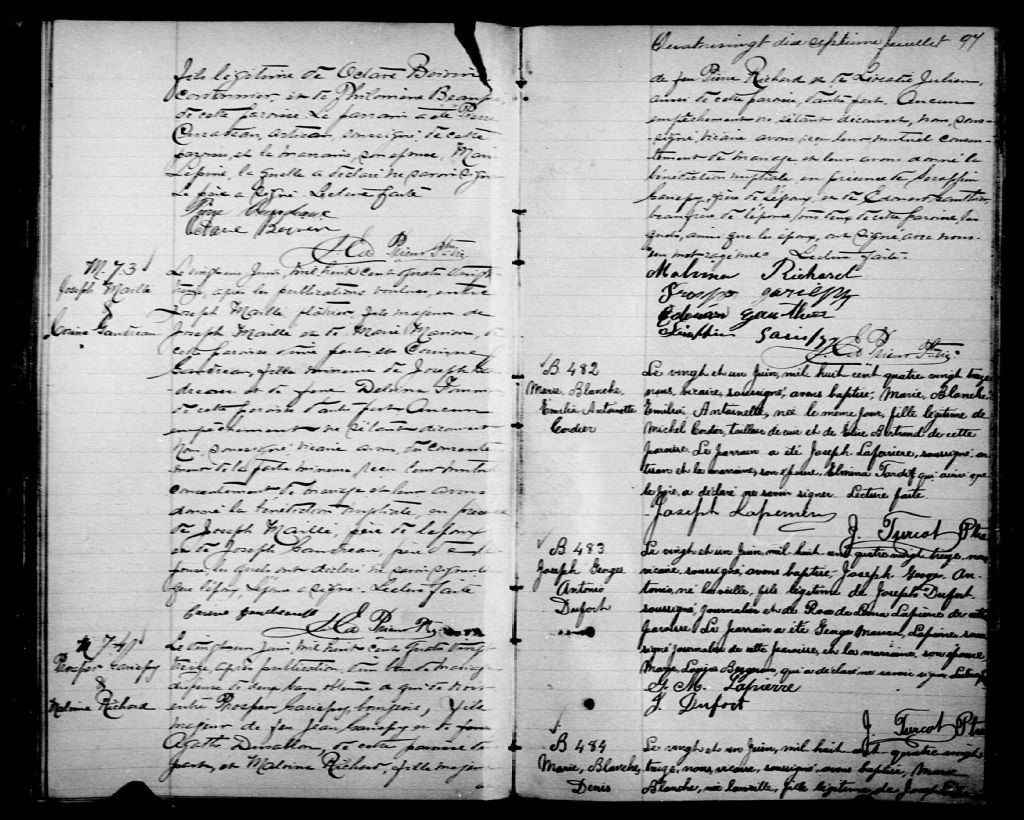 fils légitime de Octave Boivin
cordonnier, et de Philomène Beaupré
de cette paroisse. Le parrain a été Pierre
artisan, soussigné de cette
paroisse, et la marraine, son épouse, Marie
Lépine, laquelle a déclaré ne savoir signer.
Le père a signé. Lecture faite
Pierre
Octave Boivin
Ptre Vic.
M. 73
Joseph Maillé
&
Corine Gaudreau
Le vingt un Juin, mil huit cent quatre vingt
treize, après les publications voulues, entre
Joseph Maillé, plâtrier, fils majeur de
Joseph Maillé et de Marie Manion, de
cette paroisse d'une part et Corinne
Gaudreau, fille mineure de Joseph Gau
dreau et de feue Delima
de cette paroisse d'autre part. Aucun
empêchement ne s'étant découvert
Nous, soussigné vicaire avons, du consente
ment de la partie mineure, reçu leur mutuel
consentement de mariage et leur avons
donné la bénédiction nuptiale, en présence
de Joseph Maillé, père de l'époux
et de Joseph Gaudreau, père de l'é
pouse les quels ont déclaré ne savoir signer
que l'époux, L'épouse a signé. Lecture faite
Ptre
M 74
Prosper Gariépy
&
Malvina Richard
Le vingt un Juin, mil huit cent quatre vingt
treize, après publication d'un ban de mariage
dispense de deux bans obtenue de qui de droit
entre Prosper Gariépy, bourgeois, fils
majeur de feu Jean Gariépy et de feue
Agathe Duvallon, de cette paroisse d'une
part, et Malvina Richard, fille majeure
Quatrevingt dix septième feuillet 97
de feu Pierre Richard et de Léocadie Julien,
aussi de cette paroisse, d'autre part. Aucun
empêchement ne s'étant découvert, nous, sous-
signé, vicaire avons reçu leur mutuel consen-
tement de mariage et leur avons donné la
bénédiction nuptiale en présence de Séraphin
Gariépy, frère de l'époux, et de Edouard Gauthier,
beau frère de l'épouse, tous deux de cette paroisse les
quels, ainsi que les époux, ont signé avec nous.
un mot rayé nul Lecture faite.
Malvina Richard
Prosper Gariepy
Edouard Gauthier
Séraphin Gariepy
Ptre Vic.
B 482
Marie, Blanche,
Emilia Antoinette
Cordier
Le vingt et un Juin, mil huit cent quatre vingt treize
nous, vicaire, soussigné, avons baptisé, Marie, Blanche
Emilia Antoinette, née le même jour, fille légitime de
Michel Cordier, tailleur de cuir et de Elise Bertrand de cette
paroisse. Le parrain a été Joseph Lapierre, soussigné, ar
tisan et la marraine, son épouse, Elmina Tardif qui ainsi que
le père, a déclaré ne savoir signer. Lecture faite.
Joseph
J. Turcot Ptre
B 483
Joseph George
Antonio
Dufort
Le vingt et un Juin, mil huit cent quatre vingt treize, nous
vicaire, soussigné, avons baptisé, Joseph George, An-
tonio, né la veille, fils légitime de Joseph Dufort
soussigné, journalier et de Rose de Lima Lapierre de cette
paroisse. Le parrain a été George Lapierre, sous
signé journalier de cette paroisse, et la marraine, son épouse,
Marie Louise Bergeron, qui a déclaré ne savoir signer. Lecture faite
G. M. Lapierre
J. Dufort
J. Turcot Ptre
B 484
Marie, Blanche,
Denis
Le vingt et un Juin, mil huit cent quatre vingt
treize, nous, vicaire, soussigné, avons baptisé, Marie
Blanche, née la veille, fille légitime de Joseph